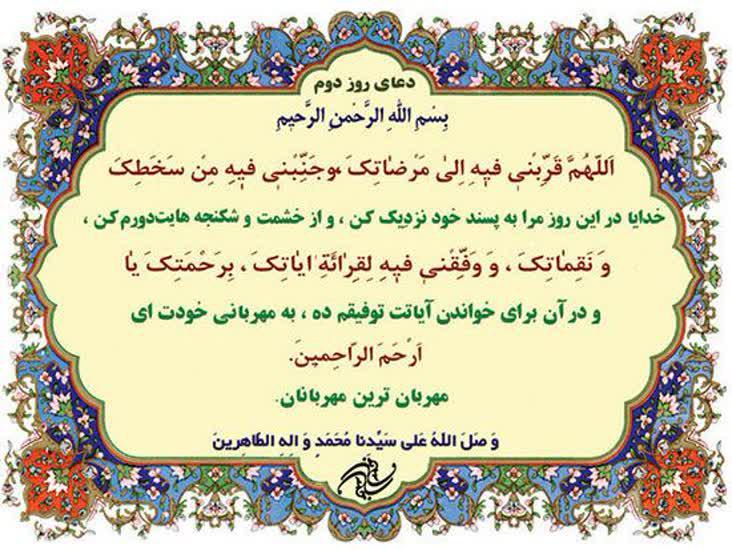 دعای روز دوم
بِسْمِ اللهِ الرَّحْمنِ الرَّحیمِ
اَللّهُمَّ قَرِّبْنی فیهِ اِلىٰ مَرْضاتِکَ ،وجَنِّبْنی فیهِ مِنْ سَخَطِکَ
خدایا در این روز مرا به پسند خود نزدیک کن ، و از خشمت و شکنجه هایت‌دورم‌کن ،
وَ نَقِماتِکَ ، وَ وَفِّقْنی فیهِ لِقِرائَةِ ایاتِکَ ، بِرَحْمَتِکَ یا
و در آن برای خواندن آیاتت توفیقم ده ، به مهربانی خودت ای
اَرْحَمَ الرّاحِمینَ.
مهربان ترین مهربانان.
وَ صَلَ اللهُ عَلی سَیِّدنا مُحَمَدٍ وَ الِهِ الطَاهِرینَ